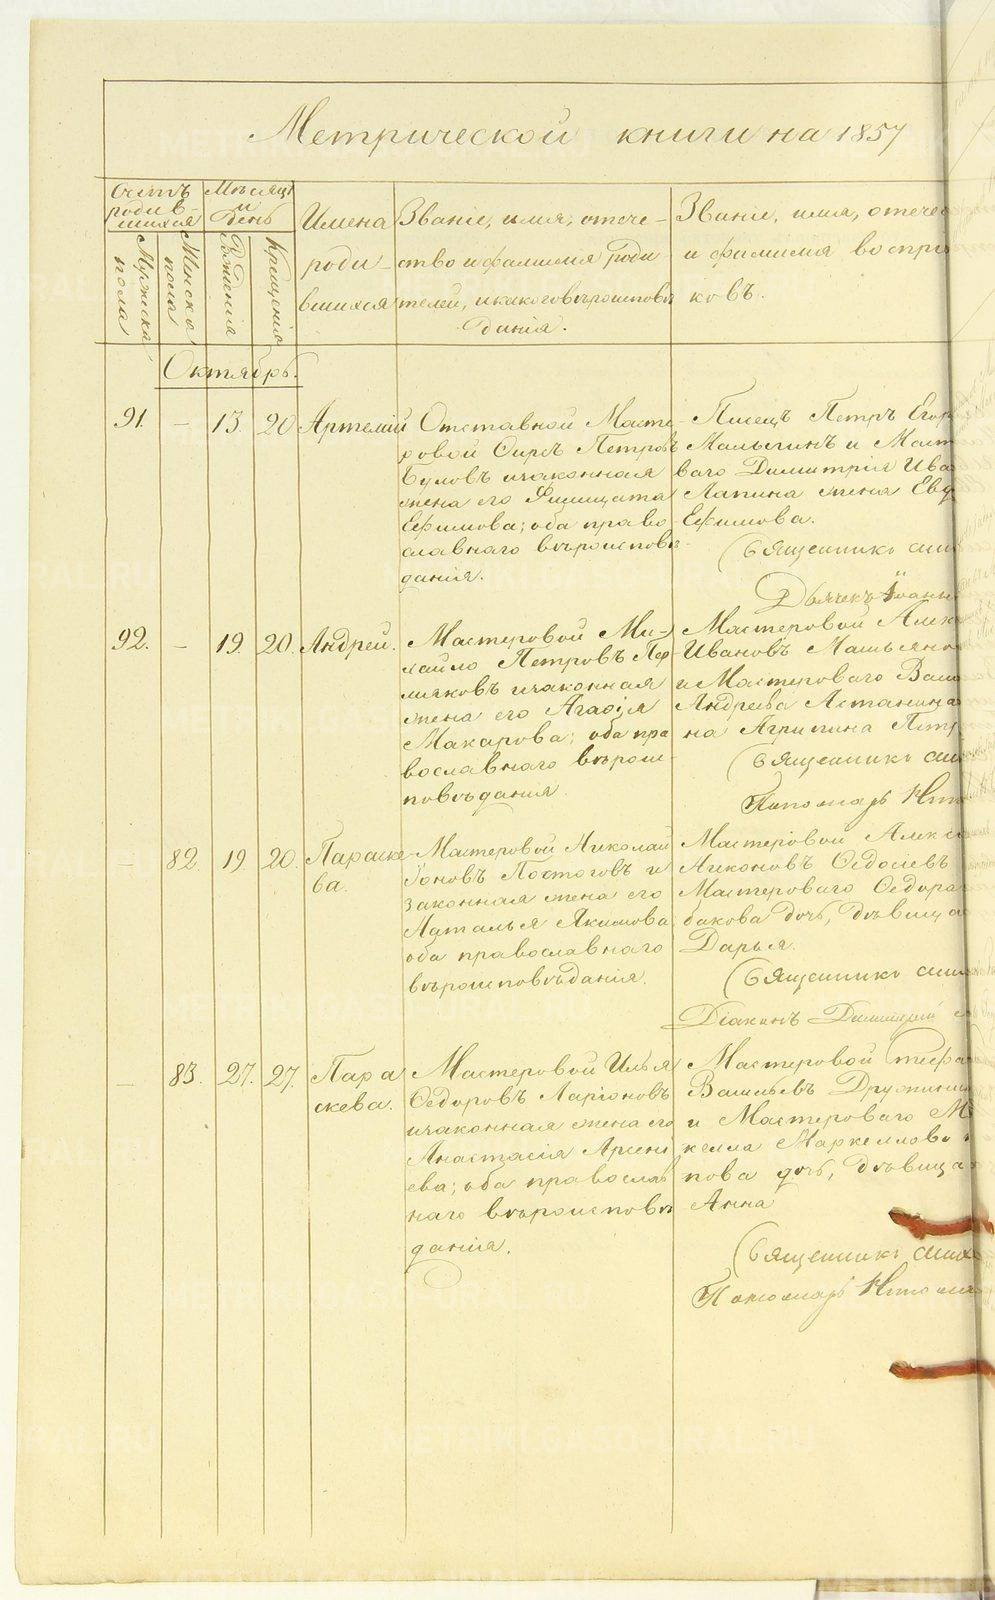 Метрической книги на 1857
Счетъ
родив-
шихся
Мѣсяцъ
и
день
Мужска
пола
Женска
пола
Рожденія
Крещенія
Имена
роди-
вшихся
Званіе, имя, отече-
ство и фамилія роди
телей, и какого вѣроисповѣ
данія.
Званіе, имя, отечес
и фамилія воспріе
ковъ.
Октябрь.
91. – 13. 20 Артемій
Отставной Масте-
ровой Петровъ
и законная
жена его
Ефимова; оба право
славнаго вѣроисповѣ-
данія.
Писецъ Петръ Егор
Малыгинъ и Маст
ваго Димитрія Ива
Лапина жена Евд
Ефимова.
Священникъ
Дьячекъ Іоаннъ
92. – 19. 20. Андрей.
Мастеровой Ми-
хайло Петровъ Пер
мяковъ и законная
жена его Агафія
Макарова; оба пра
вославнаго вѣрои-
повѣданія.
Мастеровой Алек
Ивановъ
и Мастероваго Васи
Андреева Астанина
на Агрипина Петр
Священникъ
Пономарь
– 82 19. 20. Параске-
ва.
Мастеровой Николай
Іоновъ Постоговъ и
законная жена его
Наталья Якимова
оба православнаго
вѣроисповѣданія.
Мастеровой Алекс
Никоновъ Ѳедосіевъ
Мастероваго Ѳедора
бакова дочь, дѣвица
Дарья.
Священникъ
Діаконъ Димитрій
– 83. 27. 27. Пара
скева.
Мастеровой Илья
Ѳедоровъ Ларіоновъ
и законная жена его
Анастасія Арсени
ева; оба православ
наго вѣроисповѣ
данія.
Мастеровой Стефа
Васильевъ Дружинин
и Мастероваго М
келла Маркеллова
пова дочь, дѣвица
Анна
Священникъ
Пономарь